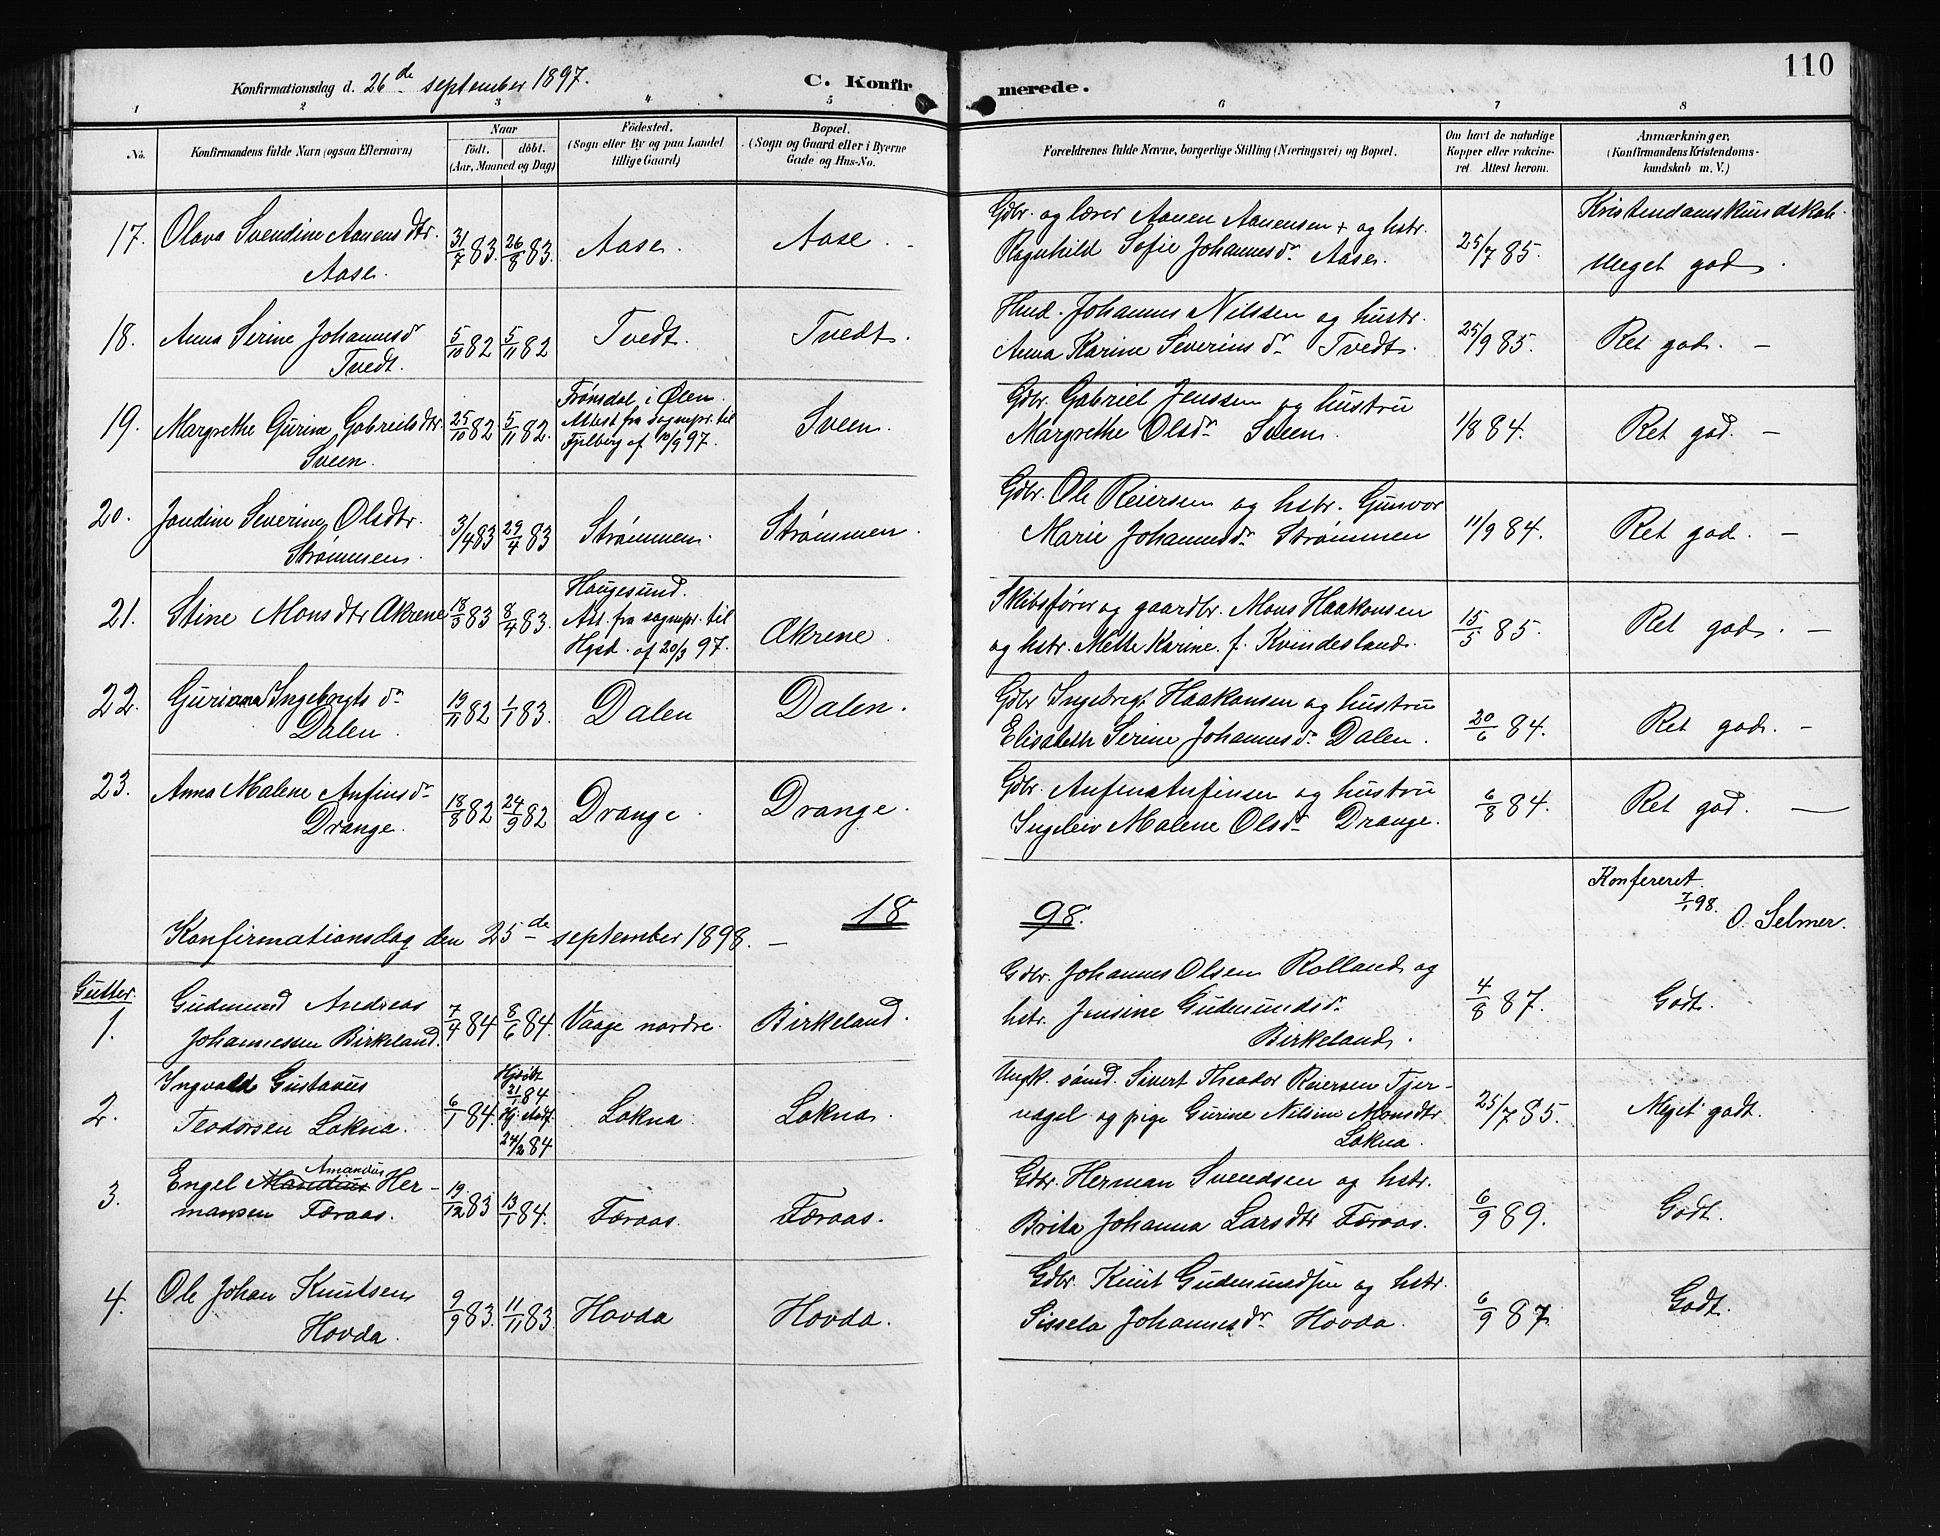 110
Konfirmationsdag d. 26de september 1897.
C. Konfirmerede.
1 2 3 4 5 6 7 8
No.
Konfirmandens fulde Navn (ogsaa Efternavn)
Naar
födt. döbt.
(Aar, Maaned og Dag)
Födested.
(Sogn eller By og paa Landet
tillige Gaard)
Bopæl.
(Sogn og Gaard eller i Byerne
Gade og Hus-No.
Forældrenes fulde Navne, borgerlige Stilling (Næringsvei) og Bopæl.
Om havt de naturlige
Kopper eller vakcine-
ret. Attest herom.
Anmærkninger.
(Konfirmandens Kristendoms-
kundskab m. V.)
17. Olava Svendine Aanensdtr.
Aase.
31/7 83. 26/8 83. Aase. Aase.
Gdbr. og lærer Aanen Aanensen + og hstr.
Ragnhild Sofie Johannesdr Aase.
25/7 85.
Kristendomskundskab.
Meget god.
18. Anna Serine Johannesdr
Tvedt.
5/10 82 5/11 82 Tvedt. Tvedt.
Hmd. Johannes Nilssen og hustr.
Anna Karine Severinsdr Tvedt.
25/9 85. Ret god. –
19. Margrethe Gurine Gabrielsdtr.
Sveen.
25/10 82 5/11 82.
Frønsdal i Ølen.
Attest fra sognepr. til
Fjelberg af 10/9 97.
Sveen.
Gdbr. Gabriel Jenssen og hustru
Margrethe Olsdr Sveen.
1/8 84. Ret god. –
20. Jondine Severine Olsdtr.
Strømmen.
3/4 83 29/4 83 Strømmen. Strømmen.
Gdbr. Ole Reiersen og hstr. Gunvor
Marie Johannesdr Strømmen
11/9 84. Ret god. –
21. Stine Monsdtr Økrene
18/3 83 8/4 83.
Haugesund.
Att. fra sognepr. til
Hgsd. af 20/9 97.
Økrene.
Skibsfører og gaardbr. Mons Haakonsen
og hstr. Mette Karine f. Kvindesland.
15/5 85. Ret god. –
22. Guriane Ingebrigtsdr
Dalen.
19/11 82 1/1 83. Dalen Dalen.
Gdbr Ingebrigt Haakonsen og hustru
Elisabeth Serine Johannesdr Dalen.
20/6 84. Ret god. –
23. Anna Malene Anfinsdr
Drange.
18/8 82 24/9 82 Drange. Drange.
Gdbr. Anfin Anfinsen og hustru
Ingeleiv Malene Olsdr Drange.
6/8 84. Ret god. –
Konfereret
7/1 98.
O. Selmer.
18 98.
Konfirmationsdag den 25de september 1898. –
Gutter.
1. Gudmund Andreas
Johannessen Birkeland.
7/4 84 8/6 84. Vaage nordre. Birkeland.
Gdbr. Johannes Olsen Rolland og
hstr. Jensine Gudmundsdr
Birkeland.
4/8 87. Godt.
2. Ingvald Gustavus
Teodorsen Lokna.
6/1 84.
Hjdøbt
21/1 84
Hj. stadf.
24/2 84
Lokna. Lokna.
Ungk. sømd. Sivert Theodor Reiersen Tjer-
nagel og pige Gurine Nilsine Monsdtr
Lokna.
25/7 85. Meget godt.
3. Engel Mandius Amandus Her-
mansen Færaas.
19/12 83 13/1 84. Færaas. Færaas.
Gdbr. Herman Svendsen og hstr.
Brita Johanna Larsdtr Færaas.
6/9 89. Godt.
4. Ole Johan Knutsen
Hovda.
9/9 83. 11/11 83. Hovda Hovda.
Gdbr. Knut Gudmundsen og hstr.
Sissela Johannesdr Hovda.
6/9 87. Godt.